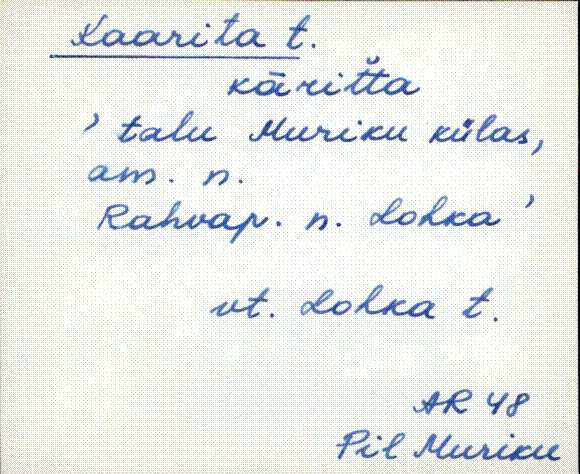 Kaarita t.
kāri͔t̆ta
' talu Muriku külas,
am. n.
Rahvap. n. Lohka '
vt. Lohka t.
AR 48
Pil Muriku